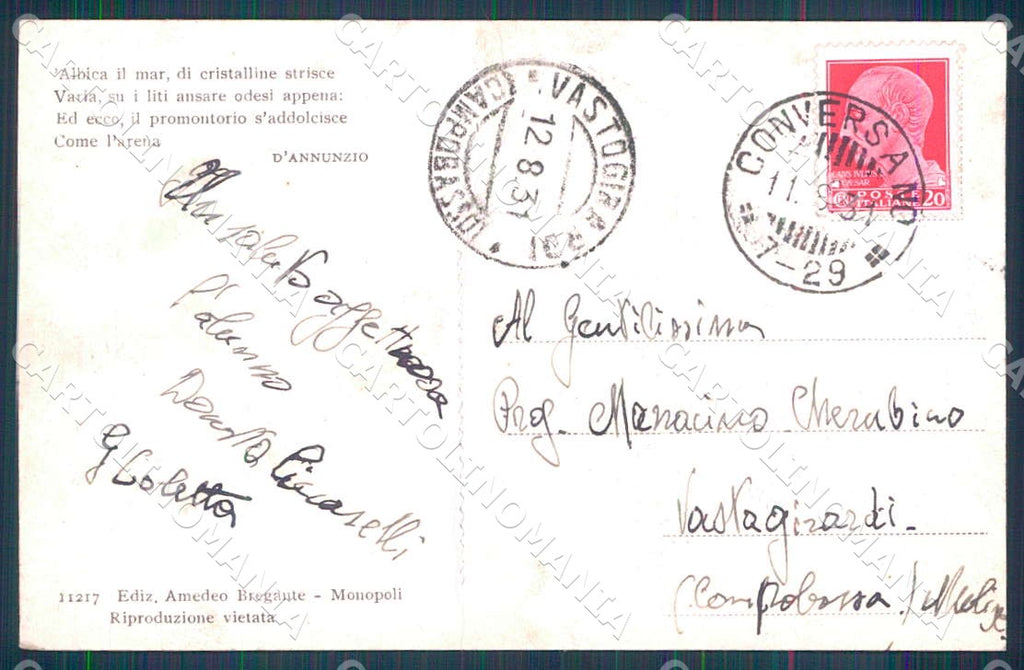 Albica il mar, di cristalline strisce
Varia, su i liti ansare odesi appena:
Ed ecco, il promontorio s'addolcisce
Come l'arena
D'ANNUNZIO
affettuosa
l'alunno
Donato Ciccarelli
G Coletta
11217 Ediz. Amedeo Bregante - Monopoli
Riproduzione vietata
VASTOGIRARDI
(CAMPOBASSO)
12.8.3
CONVERSANO
11.8.3
17-29
IANVS IVLIVS
CAESAR
POSTE
ITALIANE
20
Al Gentilissimo
Prof. Manacimo Cherubino
Vastagirardi -
(Compobassa) Molise
CARTOLINOMANIA